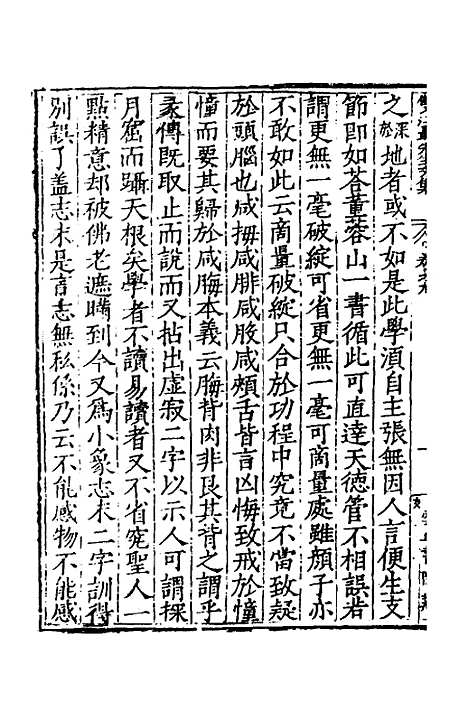 之深於地者或不如是此學湏自主張無因人言便生支
節即如荅董蓉山一書循此可直達天德管不相誤若
謂更無一毫破綻可省更無一毫可商量處雖顔子亦
不敢如此云商量破綻只合於功程中究竟不當致疑
於頭腦也咸拇咸腓咸股咸頰舌皆言凶悔致戒於憧
憧而要其歸於咸脢本義云脢背肉非艮其背之謂乎
彖傳既取止而說而又拈出虛寂二字以示人可謂探
月窟而躡天根矣學者不讀易讀者又不省究聖人一
點精意却被佛老遮瞞到今又爲小象志末二字訓得
別誤了盖志末是言志無私係乃云不能感物不能感